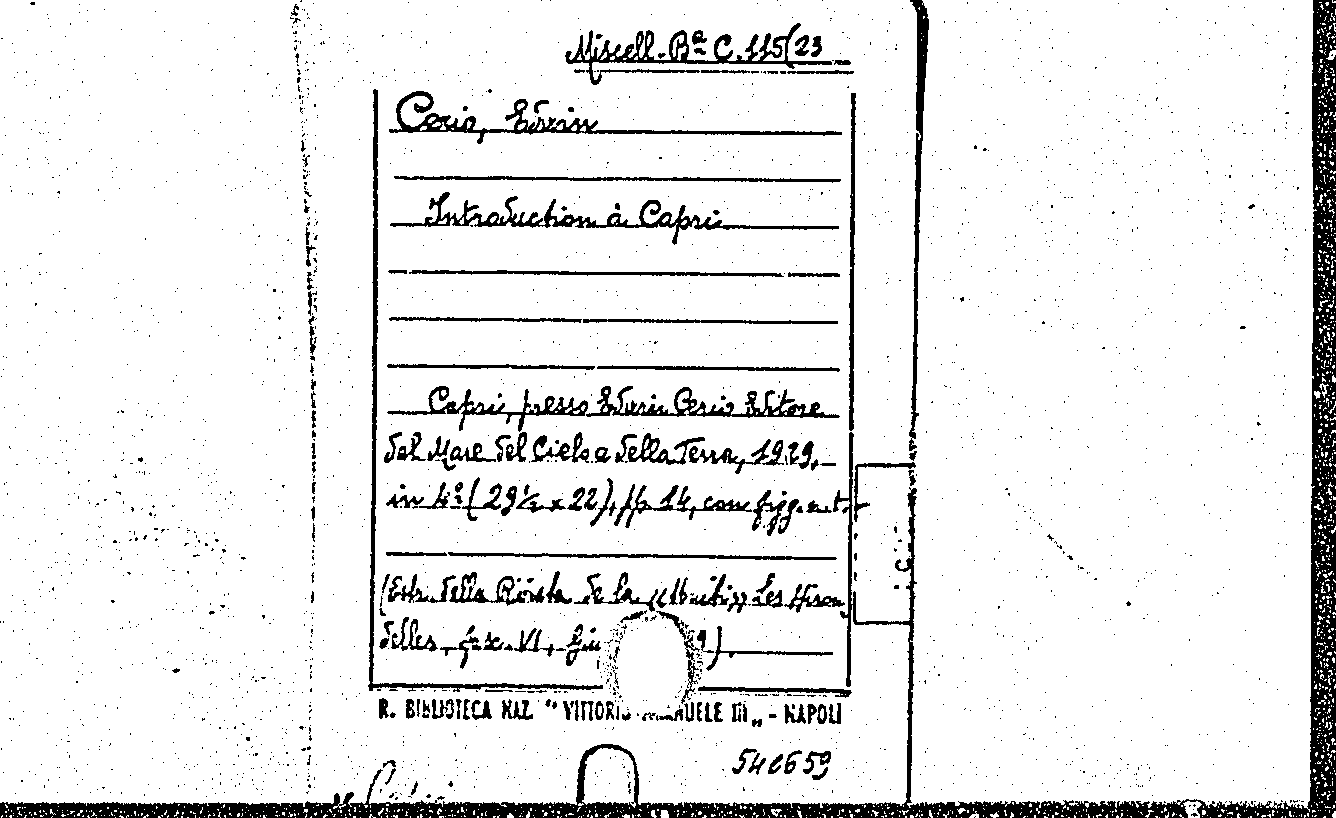 Miscell. Bª C. 115(23
Cerio, Edwin
Introduction à Capri
Capri, presso Edwin Cerio Editore
del Mare del Cielo e della Terra, 1929,
in 4º (29½ x 22), pp. 14, con figg. n. t.
(Estr. della Rivista de la Les Hiron
delles, fasc. VI, Giu 9).
R. BIBLIOTECA NAZ. " VITTORIO EMANUELE III „ - NAPOLI